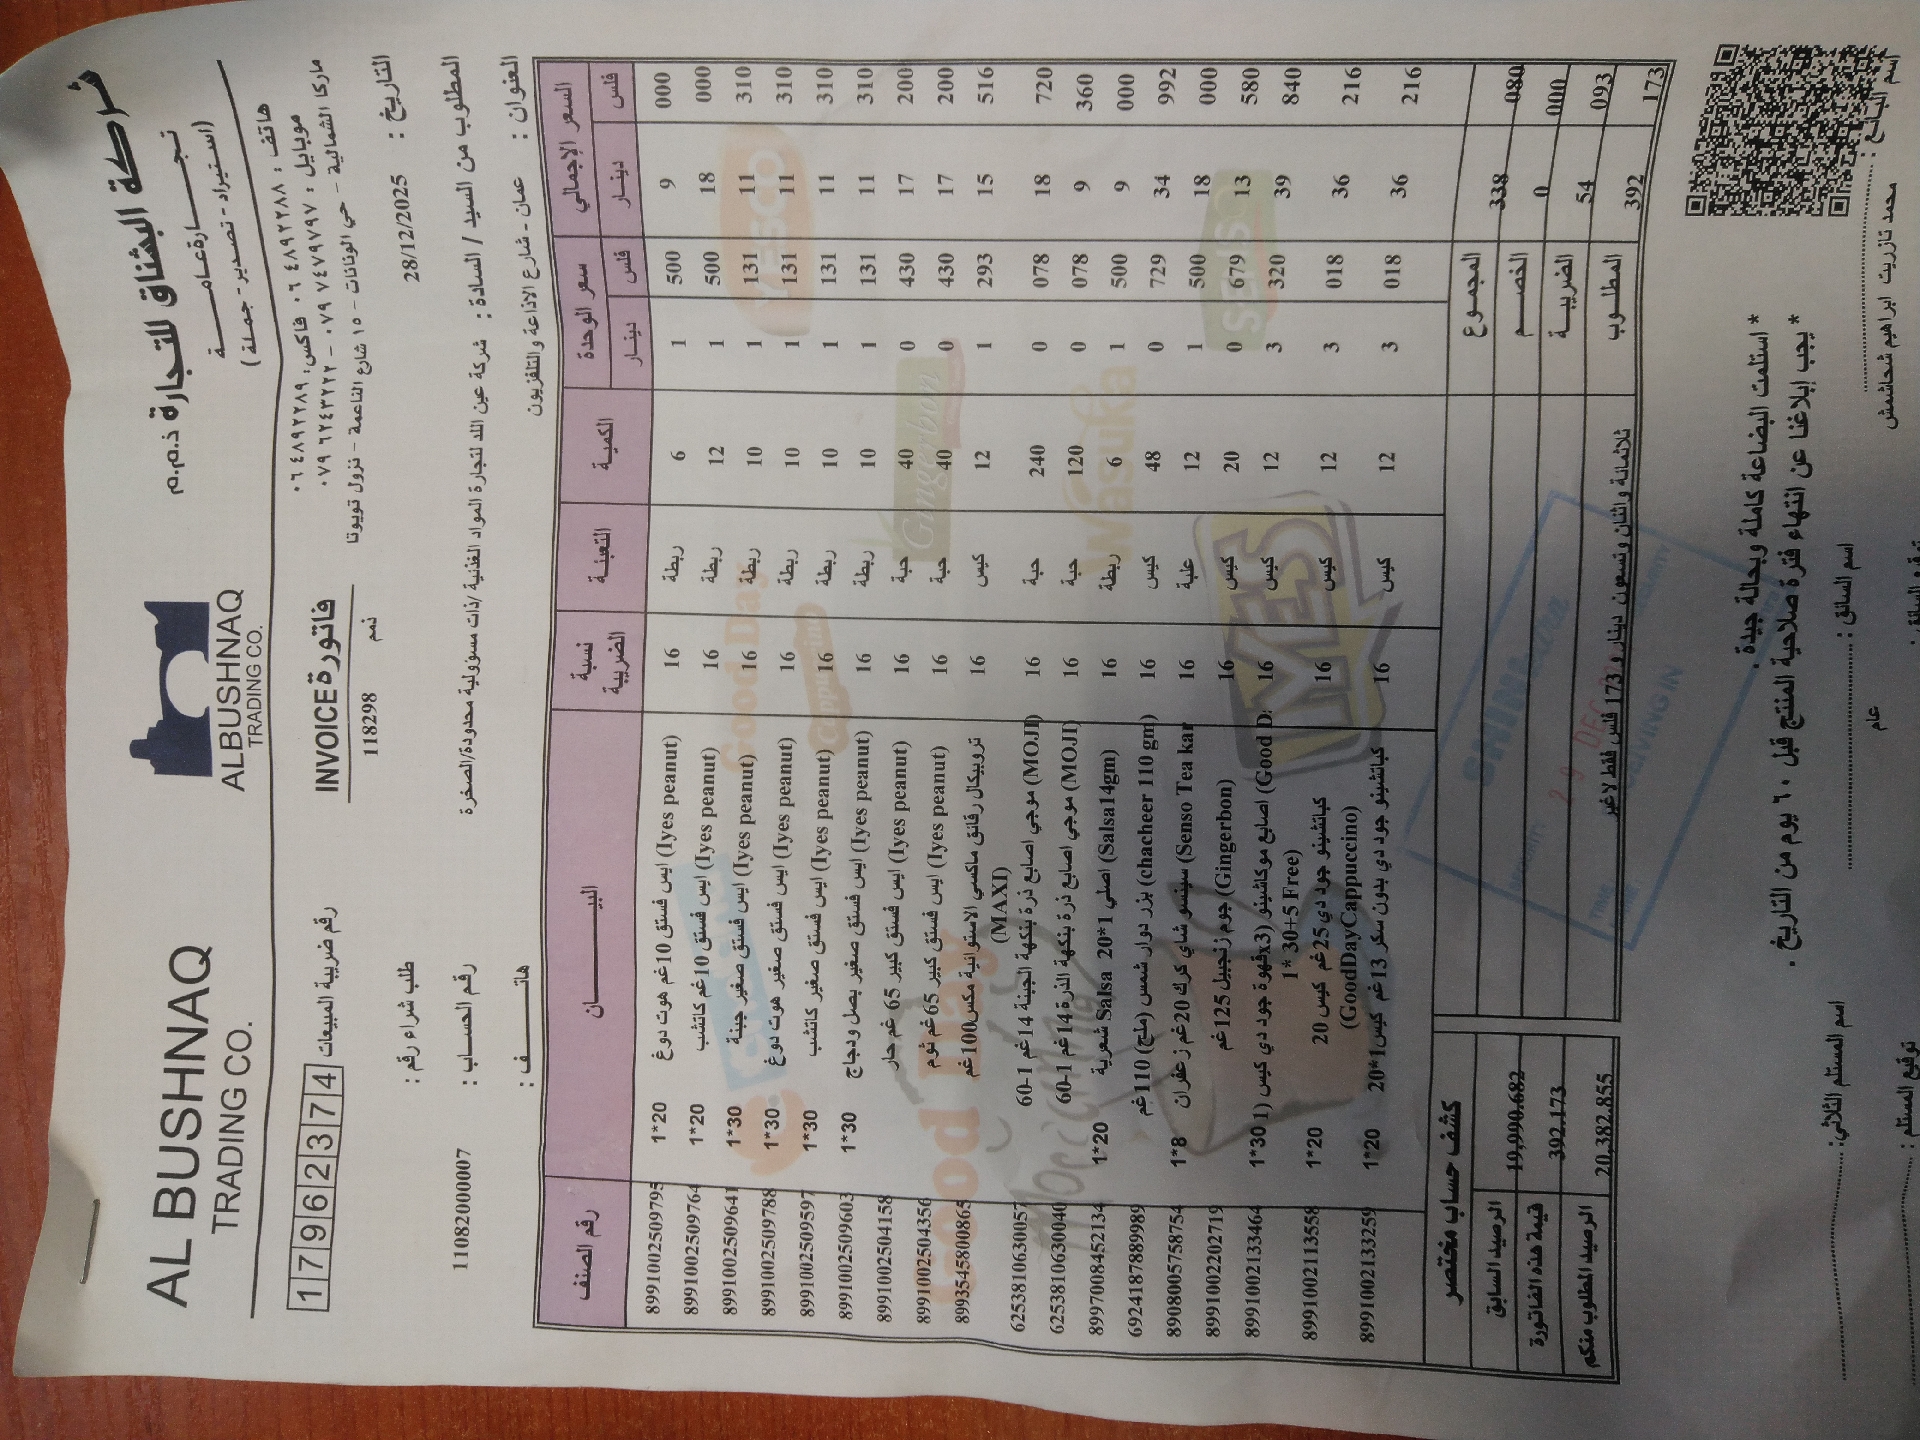 AL BUSHNAQ
TRADING CO.
ALBUSHNAQ
TRADING CO.
شركة البشناق للتجارة ذ.م.م
تجـــــارة عامـــــــة
(استيراد - تصدير - جملة)
هاتف : ٠٦ ٤٨٩٢٢٨٨ فاكس: ٠٦ ٤٨٩٢٢٨٩
موبايل : ٠٧٩ ٧٤٧٩٧٩٧ - ٠٧٩ ٦٢٤٣٢٢٢
ماركا الشمالية - حي الونانات - ١٥ شارع الناعمة - نزول تويوتا
17962374 رقم ضريبة المبيعات
فاتورة INVOICE
118298 ذمم
التاريخ : 28/12/2025
طلب شراء رقم :
رقم الحساب : 1108200007
المطلوب من السيد / السادة : شركة عين اللد لتجارة المواد الغذائية /ذات مسؤولية محدودة/الصخرة
العنوان : عمان - شارع الاذاعة والتلفزيون
هاتـــــف :
رقم الصنف البيـــــــان نسبة الضريبة التعبئـة الكميـة سعر الوحدة السعر الإجمالي
دينـار فلس دينـار فلس
8991002509795 1*20 ايس فستق 10غم هوت دوغ (Iyes peanut) 16 ربطة 6 1 500 9 000
8991002509764 1*20 ايس فستق 10غم كاتشب (Iyes peanut) 16 ربطة 12 1 500 18 000
8991002509641 1*30 ايس فستق صغير جبنة (Iyes peanut) 16 ربطة 10 1 131 11 310
8991002509788 1*30 ايس فستق صغير هوت دوغ (Iyes peanut) 16 ربطة 10 1 131 11 310
8991002509597 1*30 ايس فستق صغير كاتشب (Iyes peanut) 16 ربطة 10 1 131 11 310
8991002509603 1*30 ايس فستق صغير بصل ودجاج (Iyes peanut) 16 ربطة 10 1 131 11 310
8991002504158 ايس فستق كبير 65 غم حار (Iyes peanut) 16 حبة 40 0 430 17 200
8991002504356 ايس فستق كبير 65غم ثوم (Iyes peanut) 16 حبة 40 0 430 17 200
8993545800865 تروبيكال رقائق ماكسي الاستوائية مكس100غم (MAXI) 16 كيس 12 1 293 15 516
6253810630057 موجي اصابع ذرة بنكهة الجبنة 14غم 1-60 (MOJI) 16 حبة 240 0 078 18 720
6253810630040 موجي اصابع ذرة بنكهة الذرة 14غم 1-60 (MOJI) 16 حبة 120 0 078 9 360
8997008452134 1*20 شعرية Salsa اصلي 1*20 (Salsa14gm) 16 ربطة 6 1 500 9 000
6924187889989 بزر دوار شمس (ملح) 110غم (chacheer 110 gm) 16 كيس 48 0 729 34 992
8908005758754 1*8 سينسو شاي كرك 20غم زعفران (Senso Tea kar 16 علبة 12 1 500 18 000
8991002202719 جوم زنجبيل 125غم (Gingerbon) 16 كيس 20 0 679 13 580
8991002133464 1*30 اصابع موكاشينو (3xقهوة جود دي كيس (1 (Good D 1* 30+5 Free) 16 كيس 12 3 320 39 840
8991002113558 1*20 كباتشينو جود دي 25غم كيس 20 (GoodDayCappuccino) 16 كيس 12 3 018 36 216
8991002133259 1*20 كباتشينو جود دي بدون سكر 13غم كيس1*20 16 كيس 12 3 018 36 216
المجمـوع 338 080
الخصـم 0 000
الضريبـة 54 093
المطلـوب 392 173
ثلاثمائة واثنان وتسعون دينار و 173 فلس فقط لاغير
كشف حساب مختصر
الرصيد السابق 19,990.682
قيمة هذه الفاتورة 392.173
الرصيد المطلوب منكم 20,382.855
* استلمت البضاعة كاملة وبحالة جيدة .
* يجب إبلاغنا عن انتهاء فترة صلاحية المنتج قبل ٦٠ يوم من التاريخ .
اسم البائع : محمد نازريت ابراهيم شحاشمش
اسم السائق :
عام
اسم المستلم الثلاثي:
توقيع المستلم :